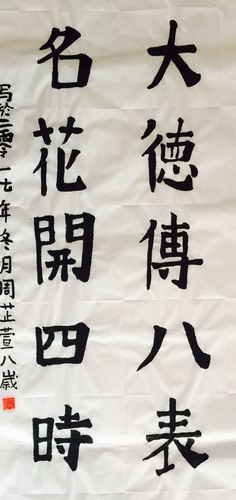 大德傳八表
名花開四時
写於二零一七年冬月周芷萱八歲